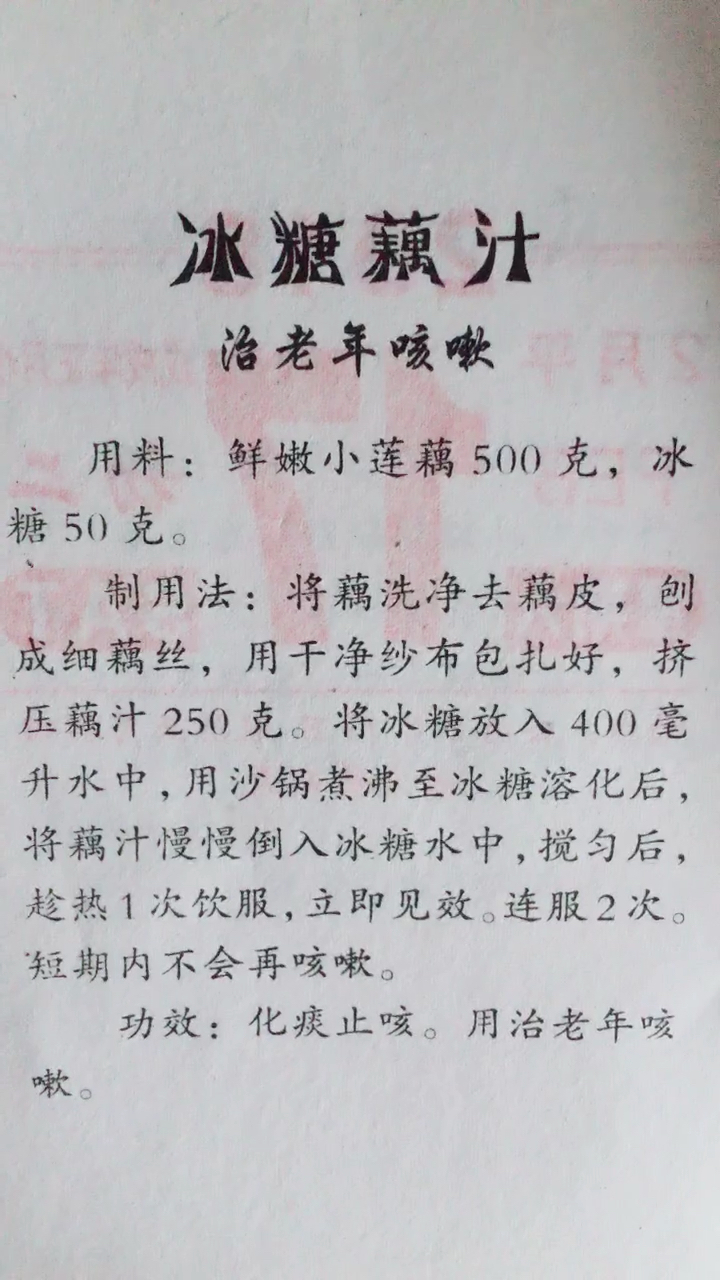 冰糖藕汁
治老年咳嗽
用料：鲜嫩小莲藕500克，冰
糖50克。
制用法：将藕洗净去藕皮，刨
成细藕丝，用干净纱布包扎好，挤
压藕汁250克。将冰糖放入400毫
升水中，用沙锅煮沸至冰糖溶化后，
将藕汁慢慢倒入冰糖水中，搅匀后，
趁热1次饮服，立即见效。连服2次。
短期内不会再咳嗽。
功效：化痰止咳。用治老年咳
嗽。